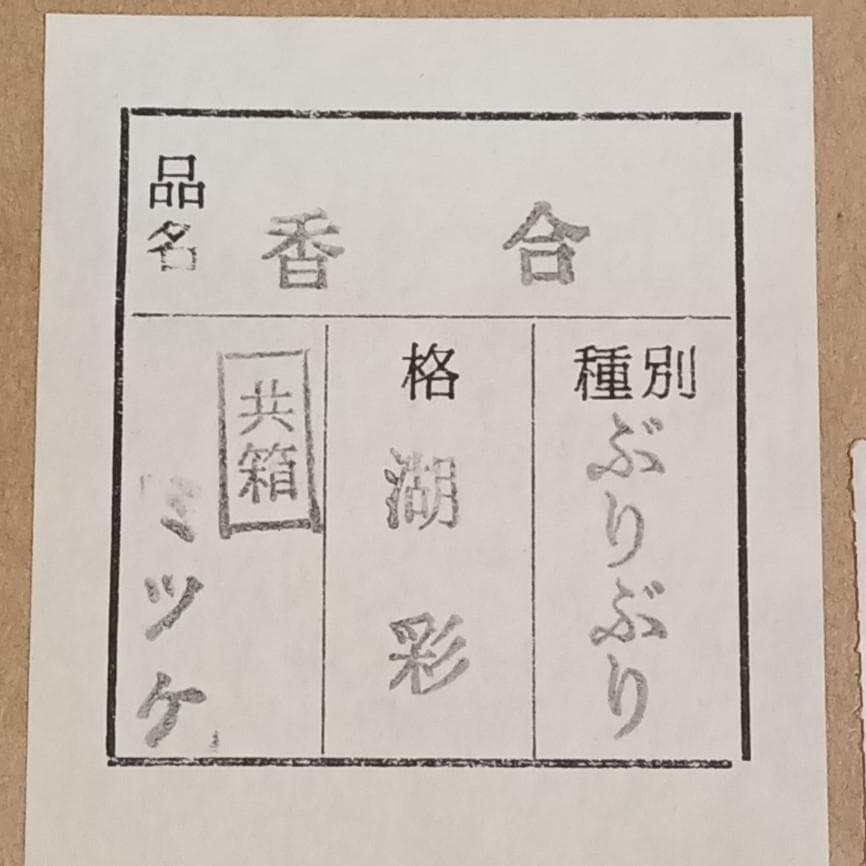 品名 香合
種別 ぶりぶり
格 湖彩
共箱
ミツケ